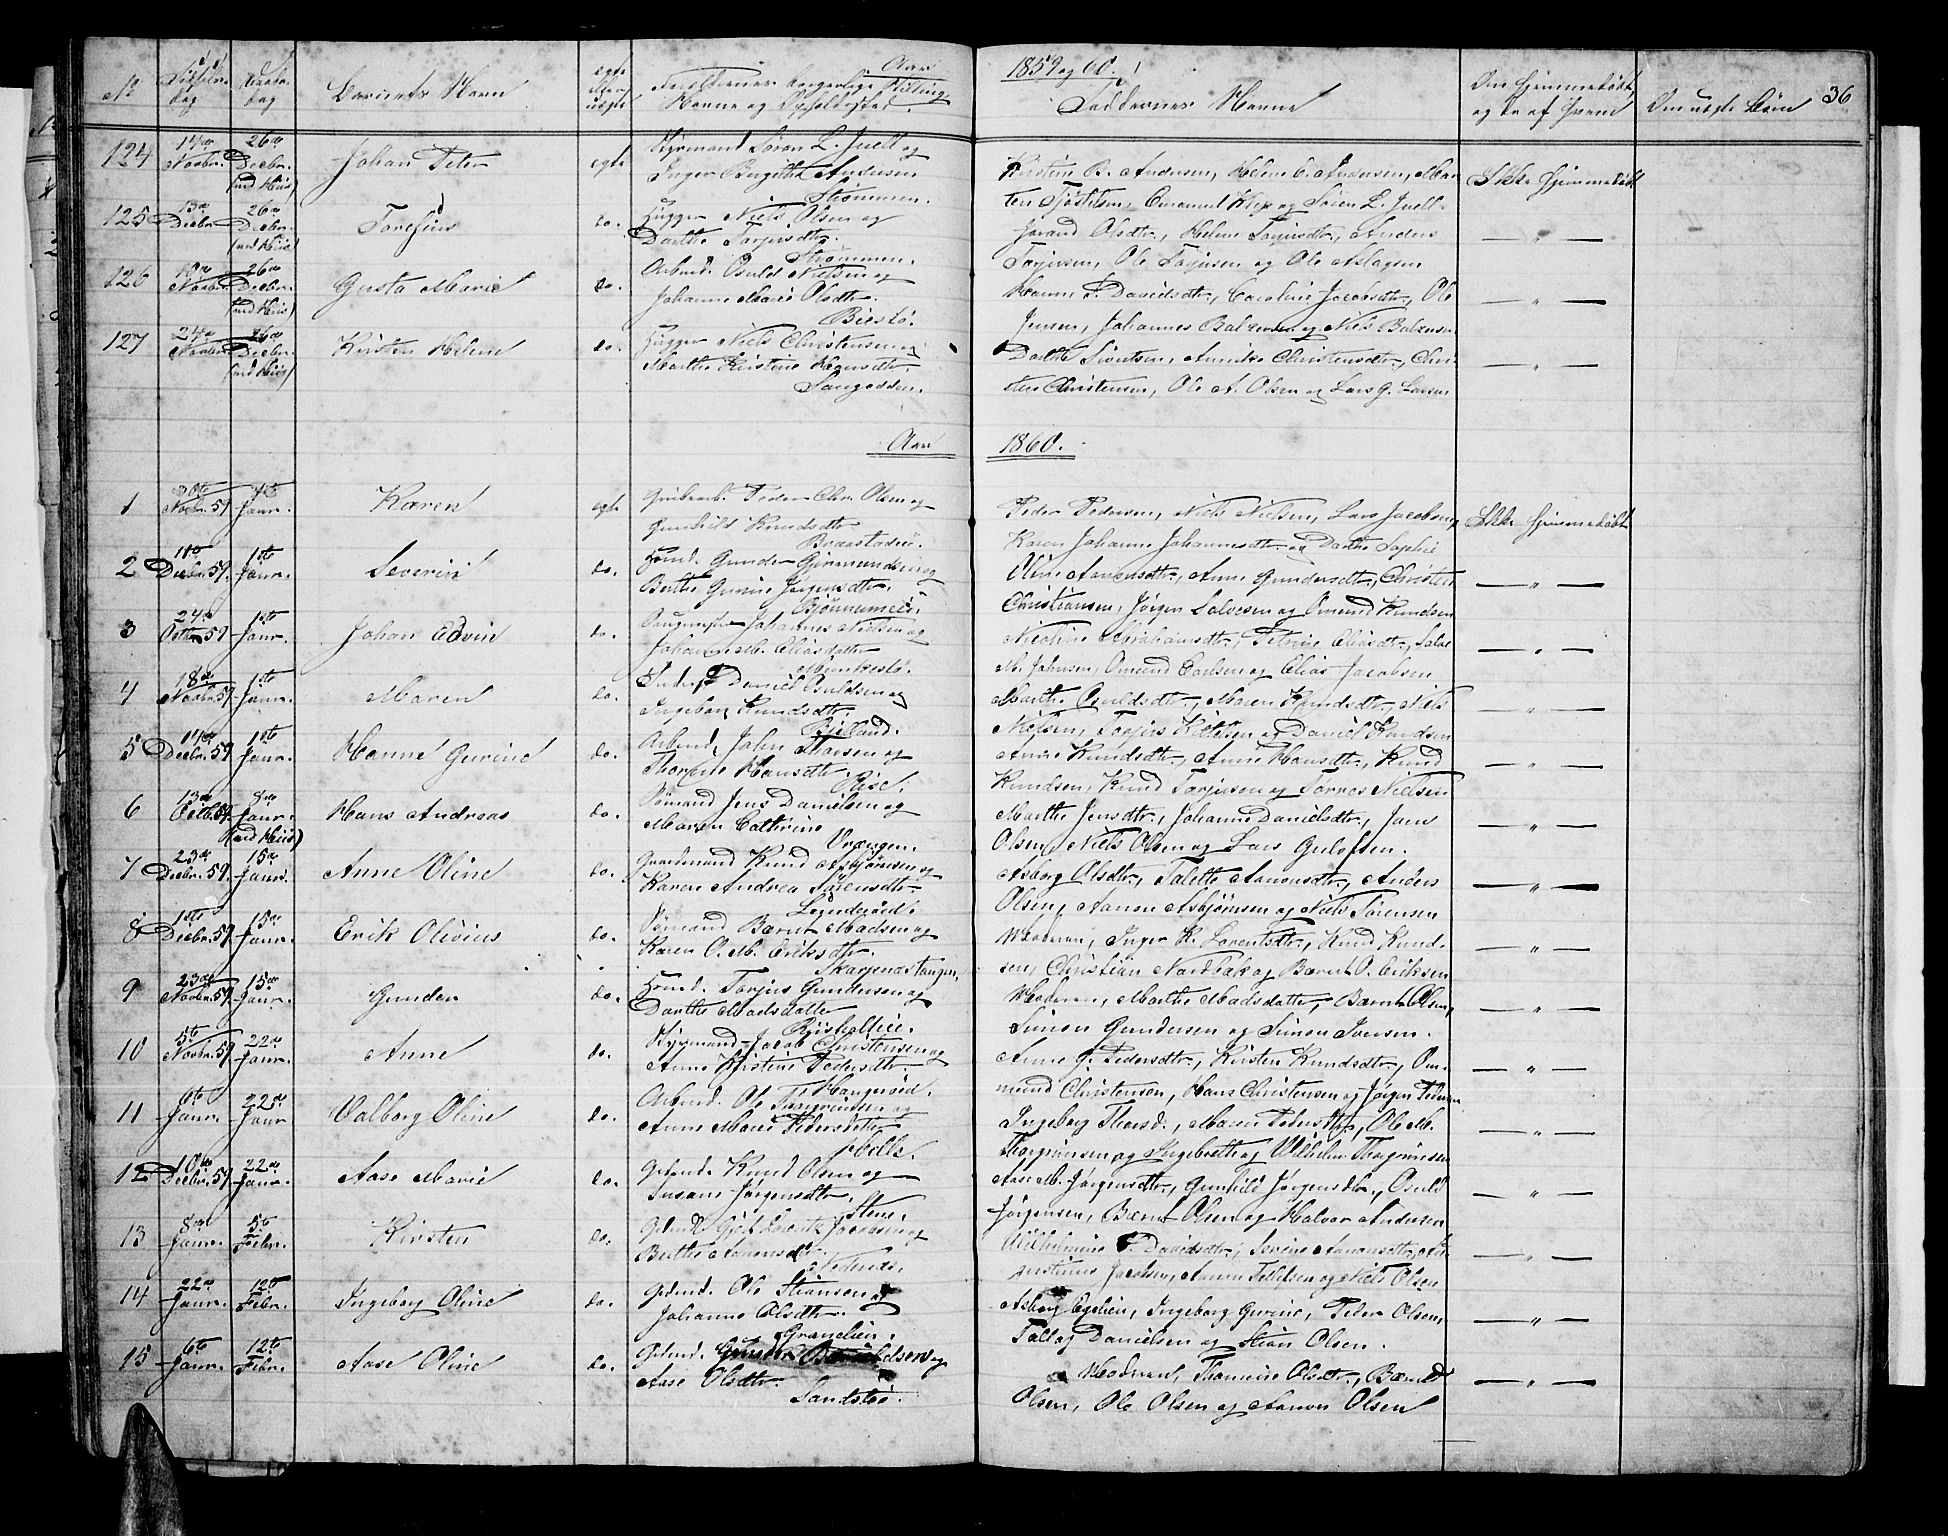 Aar 1859 og 60.
36
No Fødsels- dag Daabs- dag Barnets Navn egte eller uegte Forældrenes borgerlige Stilling, Navne og Opholdssted Faddernes Navne Om hjemmedøbt, og da af hvem Om uegte Børn
124 14de Novbr. 26de Decbr. Johan Peter egte Styrmand Søren L. Juell og
Inger Birgitte Andersen
Strømmen.
Kirstine B. Andersen, Helene C. Andersen, Mar-
ten Tjøstelsen, Emanuel Kleje og Søren L. Juell.
Ikke hjemmedøbt
125 13de Decbr. 26de Decbr. Torefius do. Hugger Niels Olsen og
Dorthe Torjusdtr.
Strømmen.
Jorand Olsdtr., Helene Torjusdtr., Anders
Torjusen, Ole Torjusen og Ole Aslagsen
— „ —
126 10de Novbr. 26de Decbr. Gusta Marie do. Arbmd. Osuld Nielsen og
Johanne Marie Olsdtr.
Biestø.
Hanne S. Davidsdtr., Caroline Jacobsdtr., Ole
Jensen, Johannes Balzersen og Niels Balzersen
— „ —
127 24de Novbr. 26de Decbr. Kirsten Helene do. Hugger Niels Christensen og
Marthe Kirstine Hansdtr.
Songedden.
Dorthe Sivertsen, Annike Christensdtr., Chri-
sten Christensen, Ole A. Olsen og Lars G. Larsen
— „ —
Aar 1860.
1 Novbr. 59 Janr. Karen egte Peder Chr. Olsen og
Gunhild Knudsdtr.
Braastadvei.
Peder Pedersen, Niels Nielsen, Lars Jacobsen,
Karen Johanne Johannesdtr. og Dorthe Sophie
Ikke hjemmedøbt
2 11te Decbr. 59. 1ste Janr. Severin do. Gunder Gjermundsen og
Berthe Gurine Jørgensdtr.
Bjønnemei.
Oline Aanonsdtr., Anne Gundersdtr., Christen
Christiansen, Jørgen Salvesen og Omund Knudsen
— „ —
3 24de Octbr. 59 1ste Janr. Johan Edvin do. Johannes Nielsen og
Johanne M. Eliasdatter
Munkestø.
Nicoline Abrahamsdtr., Petrine Eliasdtr., Salve
M. Johnsen, Omund Carlsen og Elias Jacobsen
— „ —
4 18de Novbr. 59. 1ste Janr. Maren do. Daniel Osuldsen og
Ingeborg Knudsdtr.
Bjelland.
Marthe Osuldsdtr., Maren Knudsdtr., Niels
Nielsen, Torjus Kittelsen og Daniel Knudsen
— „ —
5 14de Decbr. 59. 1ste Janr. Hanne Gurine do. Arbmd. John Thorsen og
Thorine Hansdtr.
Rise.
Anne Knudsdtr., Anne Hansdtr., Knud
Knudsen, Knud Torjusen og Tørres Nielsen
— „ —
6 13de Octb. 59. 8de Janr. Hans Andreas do. Sømand Jens Danielsen og
Maren Cathrine
Vrængen.
Marthe Jensdtr., Johanne Danielsdtr., Jens
Olsen, Niels Olsen og Lars Guloffsen.
— „ —
7 23de Decbr. 59. 15de Janr. Anne Oline do. Gaardmand Knud Asbjørnsen og
Karen Andrea Sørensdtr.
Løgnderød.
Asborg Olsdtr., Talette Aanonsdtr., Anders
Olsen, Aanon Asbjørnsen og Niels Sørensen
— „ —
8 1ste Decbr. 59. 15de Janr. Erik Olivius do. Sømand Bernt Madsen og
Karen O. M. Eriksdtr.
Skarpenæstangen.
Moderen, Inger K. Lorentsdtr., Knud Knud-
sen, Christian Nordbak og Bærnt O. Eriksen
— „ —
9 23de Novbr. 59. 15de Janr. Gunder do. Torjus Gundersen og
Dorthe Madsdatter
Moderen, Marthe Madsdatter, Bærnt Olsen,
Simon Gundersen og Simon Iversen.
— „ —
10 5te Novbr. 59. 22de Janr. Anne do. Styrmand Jacob Christensen og
Anne Kirstine Pedersdtr.
Haugerød.
Anne G. Pedersdtr., Kirsten Knudsdtr., Om-
mund Christensen, Hans Christensen og Jørgen Pedersen
— „ —
11 6te Janr. 22de Janr Valborg Oline do. Arbmd. Ole Thorgrimsen og
Anne Marie Pedersdatter
Ingeborg Thorsd., Maren Pedersdtr., Ole M.
Thorgrimsen og Ingebreth og Wilhelm Thorgrimsen
— „ —
12 10de Decbr. 59. 22de Janr. Aase Marie do. Knud Olsen og
Susane Jørgensdtr.
Stene.
Aase M. Jørgensdtr., Gunhild Jørgensdtr., Osuld
Jørgensen, Bærnt Olsen og Halvor Andersen
— „ —
13 8de Janr. 5te Febr. Kirsten do. Jacobsen og
Berthe Aanonsdtr.
Nedenæs.
Wilhelmine S. Davidsdtr., Serine Aanonsdtr., Au-
gustinus Jacobsen, Aanon Tellefsen og Niels Olsen
— „ —
14 22de Janr. 12te Febr. Ingeborg Oline do. Ole Stiansen og
Johanne Olsdtr.
Granelien.
Asborg Egelien, Ingeborg Gurine, Peder Olsen,
Tallag Danielsen og Stian Olsen.
— „ —
15 6te Janr. 12te Febr. Aase Oline do. og
Aase Olsdtr.
Sandstø.
Moderen, Thomine Olsdtr., Bærnt
Olsen, Ole Olsen og Aanon Olsen
— „ —